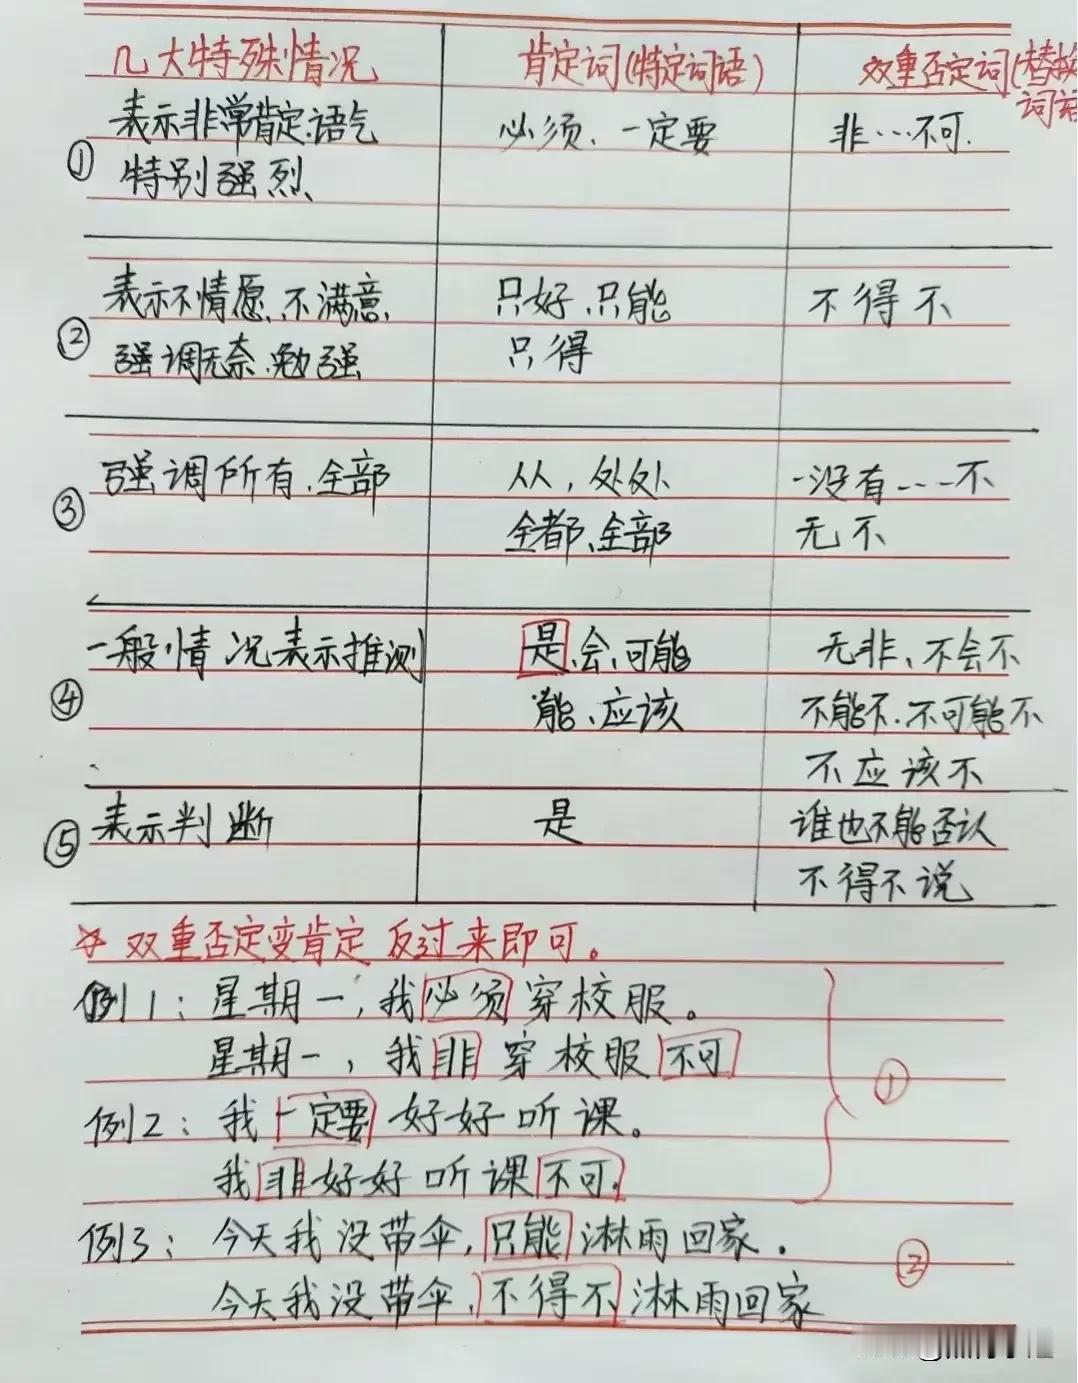 几大特殊情况 肯定词(特定词语) 双重否定词(替换
词语
表示非常肯定.语气 必须、一定要 非…不可.
① 特别强烈、
表示不情愿、不满意、 只好、只能 不得不
② 强调无奈、勉强 只得
强调所有、全部 人人,处处、 没有……不
③ 全都、全部 无不
一般情况表示推测 是、会、可能 无非、不会不
④ 能、应该 不能不、不可能不
不应该不
⑤ 表示判断 是 谁也不能否认
不得不说
☆ 双重否定变肯定 反过来即可。
例1：星期一,我必须穿校服。
星期一,我非穿校服不可
例2：我一定要好好听课。
我非好好听课不可.
①
例3：今天我没带伞,只能淋雨回家.
今天我没带伞,不得不淋雨回家
②